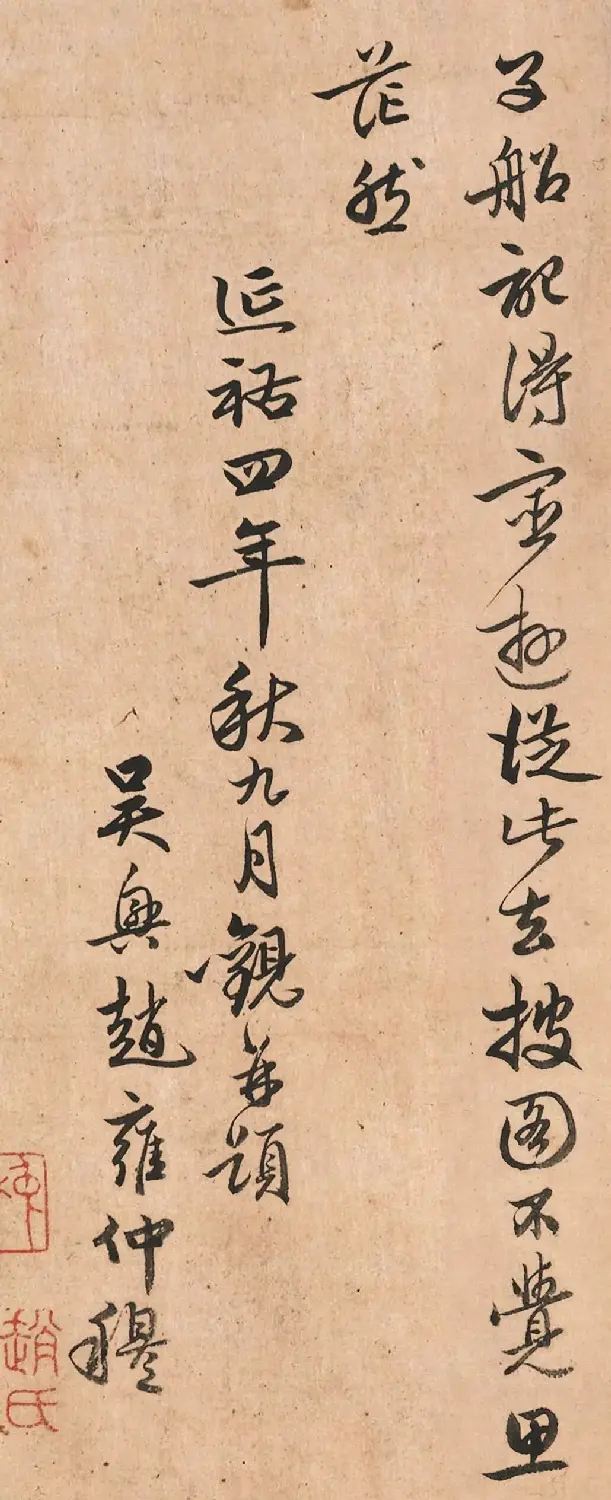 子船記得遊從此去披圖不覺思
茫然
延祐四年秋九月觀并題
吳興趙雍仲穆
趙氏